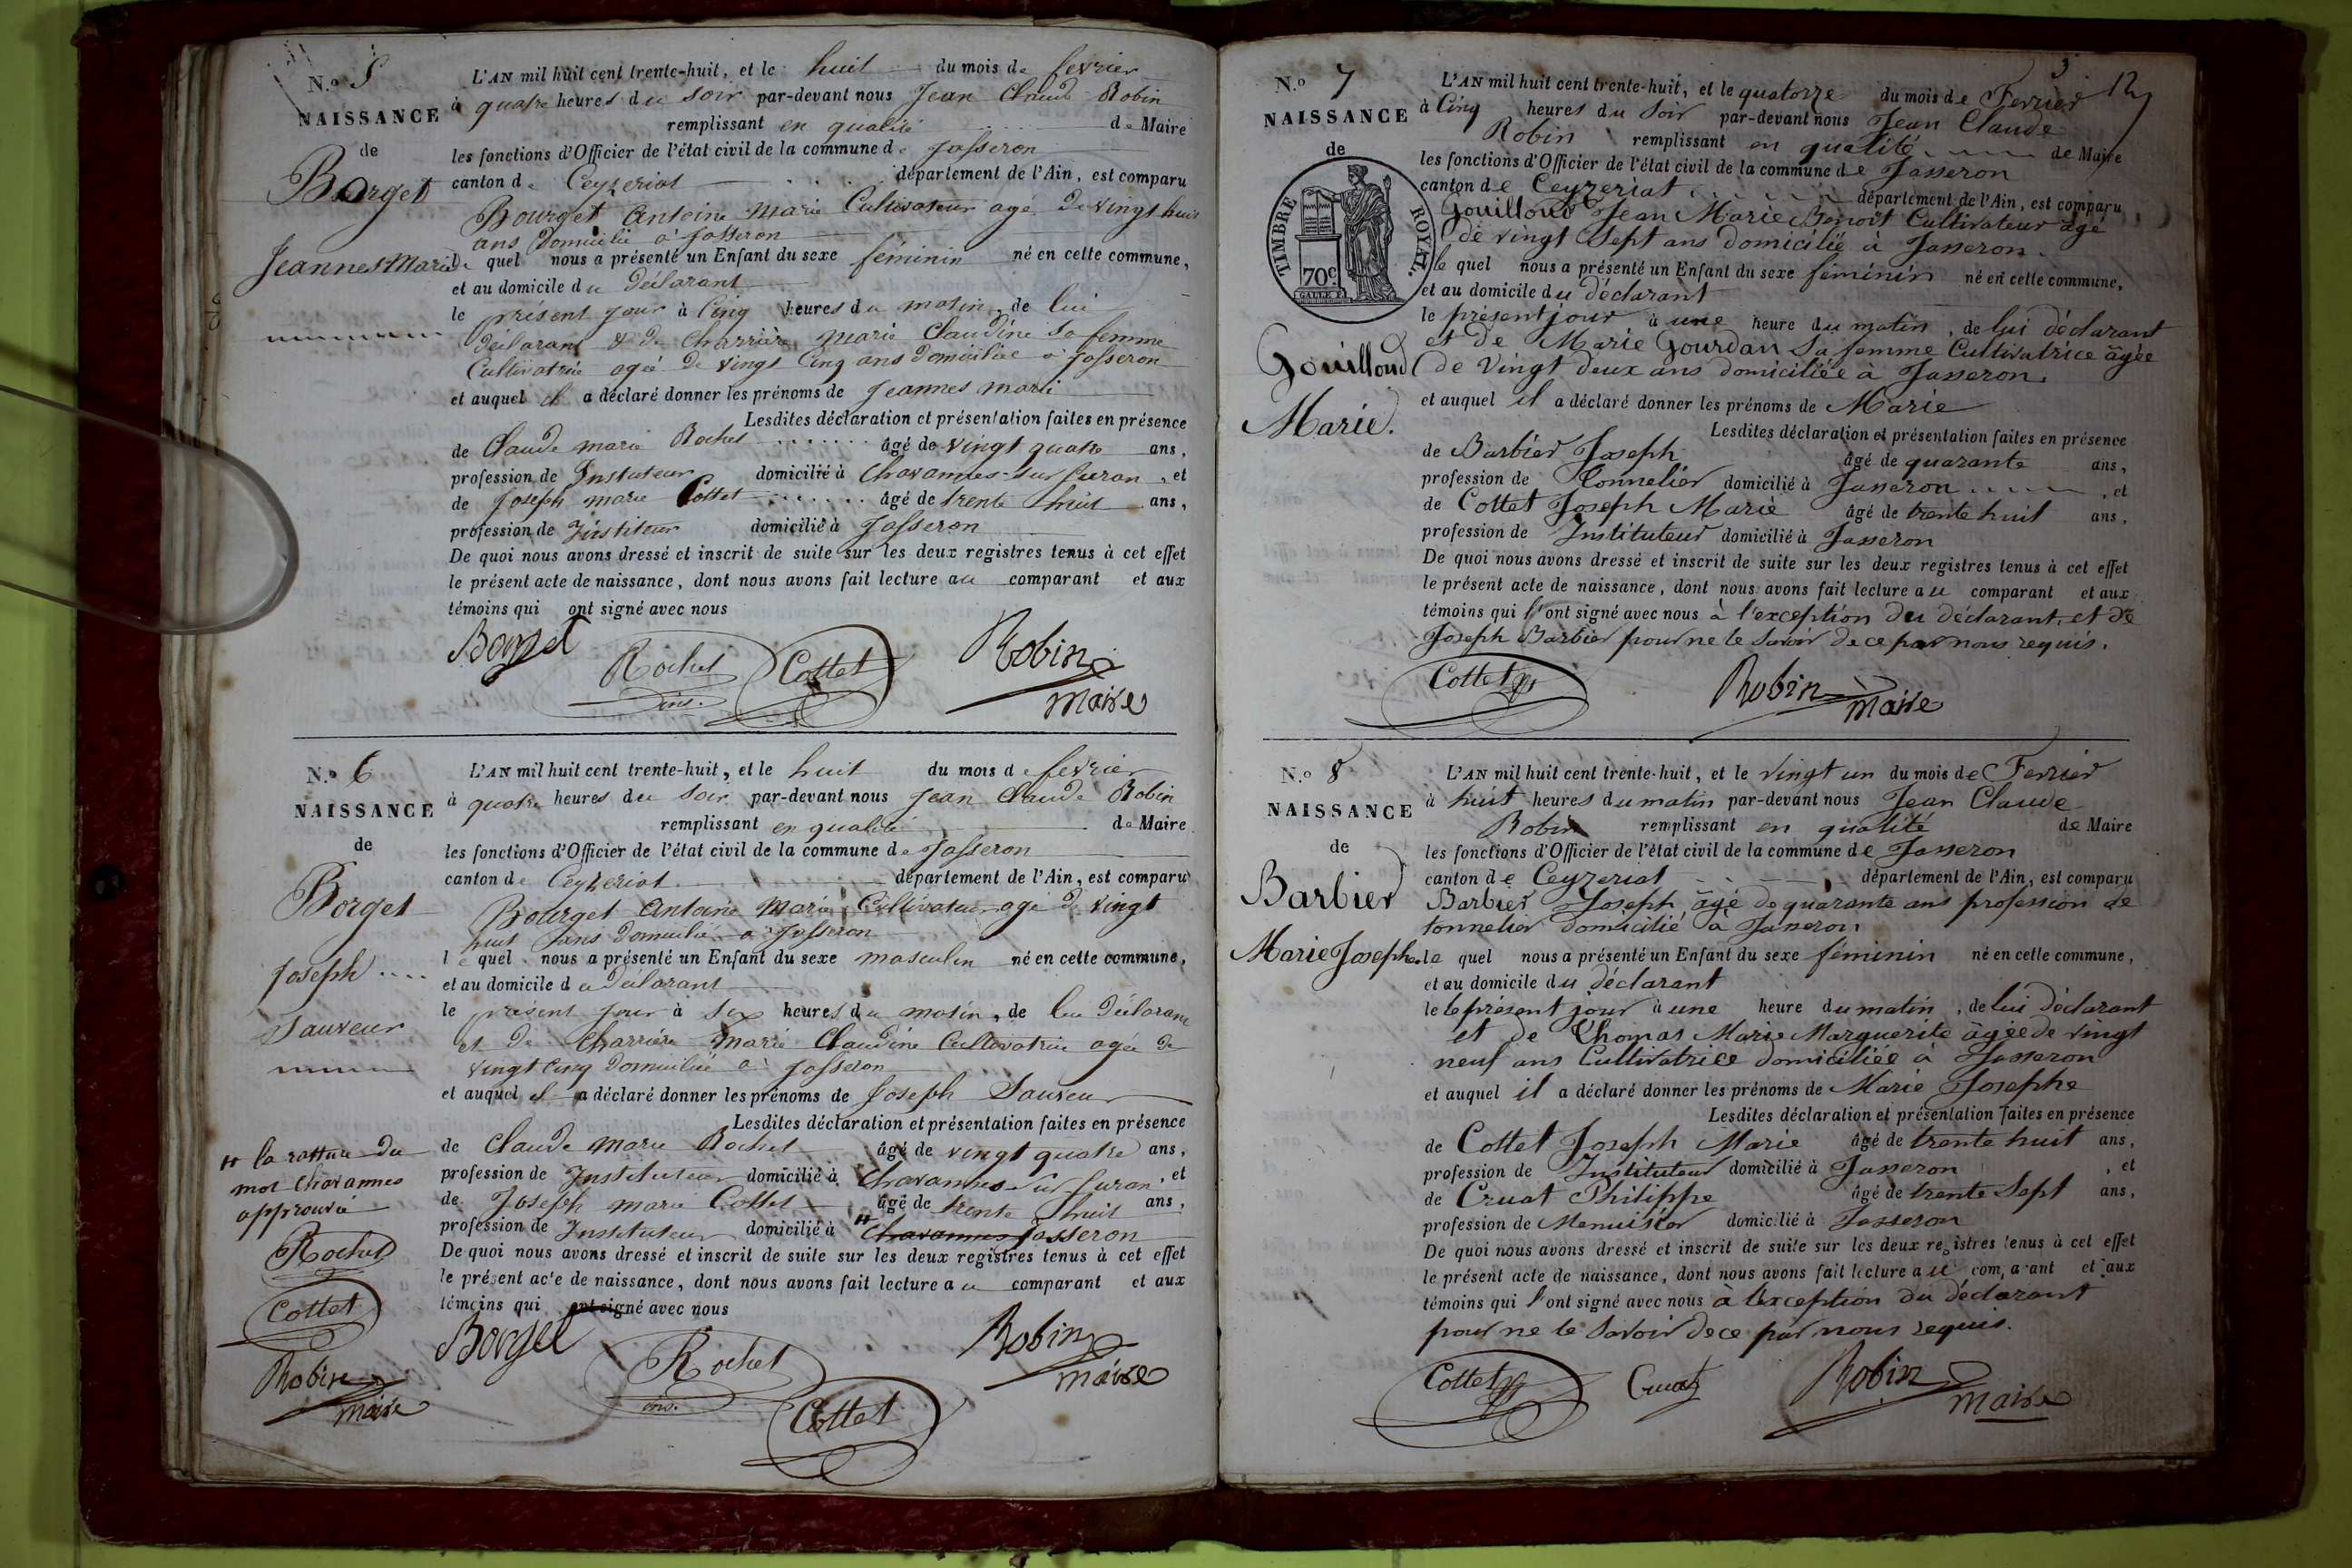 N.o 5
NAISSANCE
de
Borget
Jeannes Marie
L'AN mil huit cent trente-huit, et le huit du mois de fevrier
à quatre heures du soir par-devant nous Jean Claude Robin
remplissant en qualité de Maire
les fonctions d'Officier de l'état civil de la commune de Jasseron
canton de Ceyzeriat département de l'Ain, est comparu
Bourget Antoine Marie Cultivateur agé de vingt huit
ans Domicilié à Jasseron
le quel nous a présenté un Enfant du sexe féminin né en cette commune,
et au domicile du Déclarant
le présent jour à Cinq heures du matin, de lui
Déclarant & de Charrière Marie Claudine sa femme
Cultivatrice agée de vingt Cinq ans Domiciliée à Jasseron
et auquel il a déclaré donner les prénoms de Jeannes marie
Lesdites déclaration et présentation faites en présence
de Claude marie Rochet âgé de vingt quatre ans,
profession de Instituteur domicilié à Chavannes-sur suran, et
de Joseph marie Cottet âgé de trente huit ans,
profession de Institeur domicilié à Jasseron
De quoi nous avons dressé et inscrit de suite sur les deux registres tenus à cet effet
le présent acte de naissance, dont nous avons fait lecture au comparant et aux
témoins qui ont signé avec nous
Borget
Rochet
ins.
Cottet
Robin
maire
N.o 6
NAISSANCE
de
Borget
Joseph
Sauveur
L'AN mil huit cent trente-huit, et le huit du mois de fevrier
à quatre heures du soir par-devant nous Jean Claude Robin
remplissant en qualité de Maire
les fonctions d'Officier de l'état civil de la commune de Jasseron
canton de Ceyzeriat département de l'Ain, est comparu
Bourget Antoine Marie Cultivateur age de vingt
huit ans Domicilié à Jasseron
le quel nous a présenté un Enfant du sexe masculin né en cette commune,
et au domicile du Déclarant
le présent jour à six heures du matin, de lui Déclarant
et de Charrière Marie Claudine Cultivatrice agée de
vingt cinq Domiciliée à Jasseron
et auquel il a déclaré donner les prénoms de Joseph Sauveur
Lesdites déclaration et présentation faites en présence
de Claude Marie Rochet âgé de vingt quatre ans,
profession de Instituteur domicilié à Chavannes-sur suran, et
de Joseph marie Cottet âgé de trente huit ans,
profession de Instituteur domicilié à Chavannes Jasseron
De quoi nous avons dressé et inscrit de suite sur les deux registres tenus à cet effet
le présent acte de naissance, dont nous avons fait lecture au comparant et aux
témoins qui ont signé avec nous
la rature du
mot Chavannes
approuvée
Rochet
Cottet
Robin
maire
Borget
Rochet
ins.
Cottet
Robin
maire
3
12
N.o 7
NAISSANCE
de
TIMBRE ROYAL.
70c
Gouilloud
Marie.
L'AN mil huit cent trente-huit, et le quatorze du mois de Fevrier
à Cinq heures du Soir par-devant nous Jean Claude
Robin remplissant en qualité de Maire
les fonctions d'Officier de l'état civil de la commune de Jasseron
canton de Ceyzeriat département de l'Ain, est comparu
Gouilloud Jean Marie Benoit Cultivateur âgé
de vingt Sept ans domicilié à Jasseron.
le quel nous a présenté un Enfant du sexe féminin né en cette commune,
et au domicile du déclarant
le présent jour à une heure du matin, de lui déclarant
et de Marie Gourdan Sa femme Cultivatrice âgée
de Vingt deux ans domiciliée à Jasseron.
et auquel il a déclaré donner les prénoms de Marie
Lesdites déclaration et présentation faites en présence
de Barbier Joseph âgé de quarante ans,
profession de Tonnelier domicilié à Jasseron, et
de Cottet Joseph Marie âgé de trente huit ans,
profession de Instituteur domicilié à Jasseron
De quoi nous avons dressé et inscrit de suite sur les deux registres tenus à cet effet
le présent acte de naissance, dont nous avons fait lecture au comparant et aux
témoins qui l'ont signé avec nous à l'exception du déclarant, et de
Joseph Barbier pour ne le Savoir de ce par nous requis.
Cottet
Robin
maire
N.o 8
NAISSANCE
de
Barbier
Marie Josephe
L'AN mil huit cent trente-huit, et le vingt un du mois de Fevrier
à huit heures du matin par-devant nous Jean Claude
Robin remplissant en qualité de Maire
les fonctions d'Officier de l'état civil de la commune de Jasseron
canton de Ceyzeriat département de l'Ain, est comparu
Barbier Joseph âgé de quarante ans profession de
tonnelier domicilié à Jasseron
le quel nous a présenté un Enfant du sexe féminin né en cette commune,
et au domicile du déclarant
le le présent jour à une heure du matin, de lui déclarant
et de Thomas Marie Marguerite âgée de vingt
neuf ans Cultivatrice domiciliée à Jasseron
et auquel il a déclaré donner les prénoms de Marie Josephe
Lesdites déclaration et présentation faites en présence
de Cottet Joseph Marie âgé de trente huit ans,
profession de Instituteur domicilié à Jasseron, et
de Cruat Philippe âgé de trente Sept ans,
profession de Menuisier domicilié à Jasseron
De quoi nous avons dressé et inscrit de suite sur les deux registres tenus à cet effet
le présent acte de naissance, dont nous avons fait lecture au comparant et aux
témoins qui l'ont signé avec nous à l'exception du déclarant
pour ne le Savoir de ce par nous requis.
Cottet
Cruat
Robin
maire